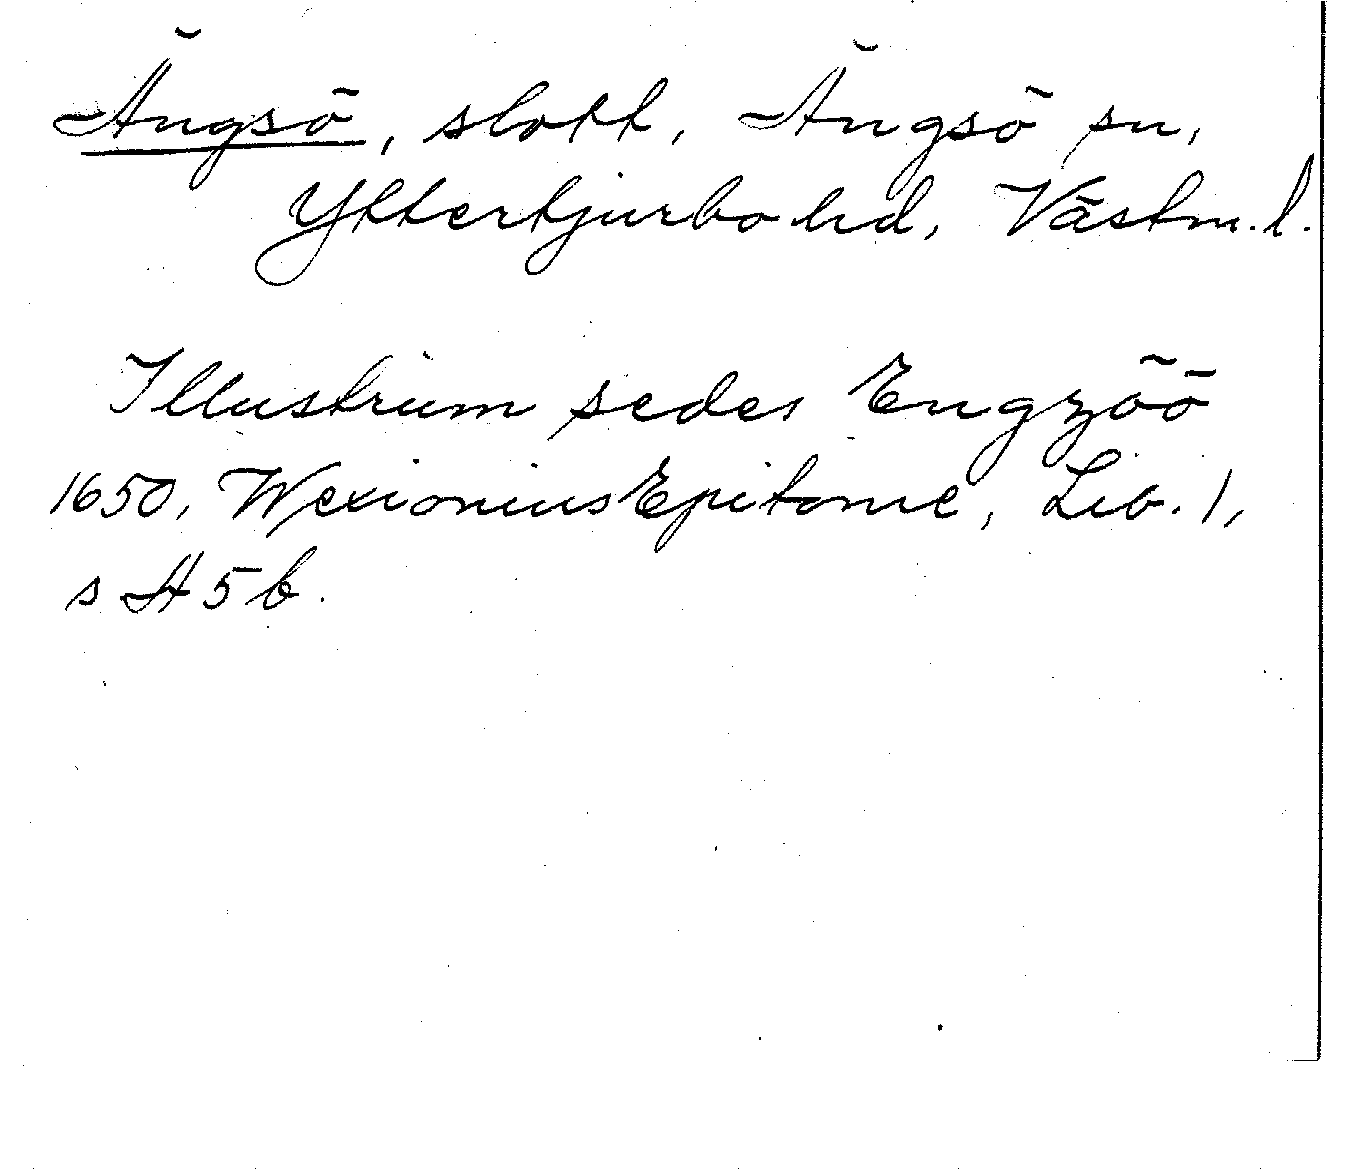 Ängsö, slott, Ängsö sn,
Yttertjurbo hd, Västm. l.
Illustrium sedes Engzöö
1650, Wexionius Epitome, Lib. 1,
s H 5 b.